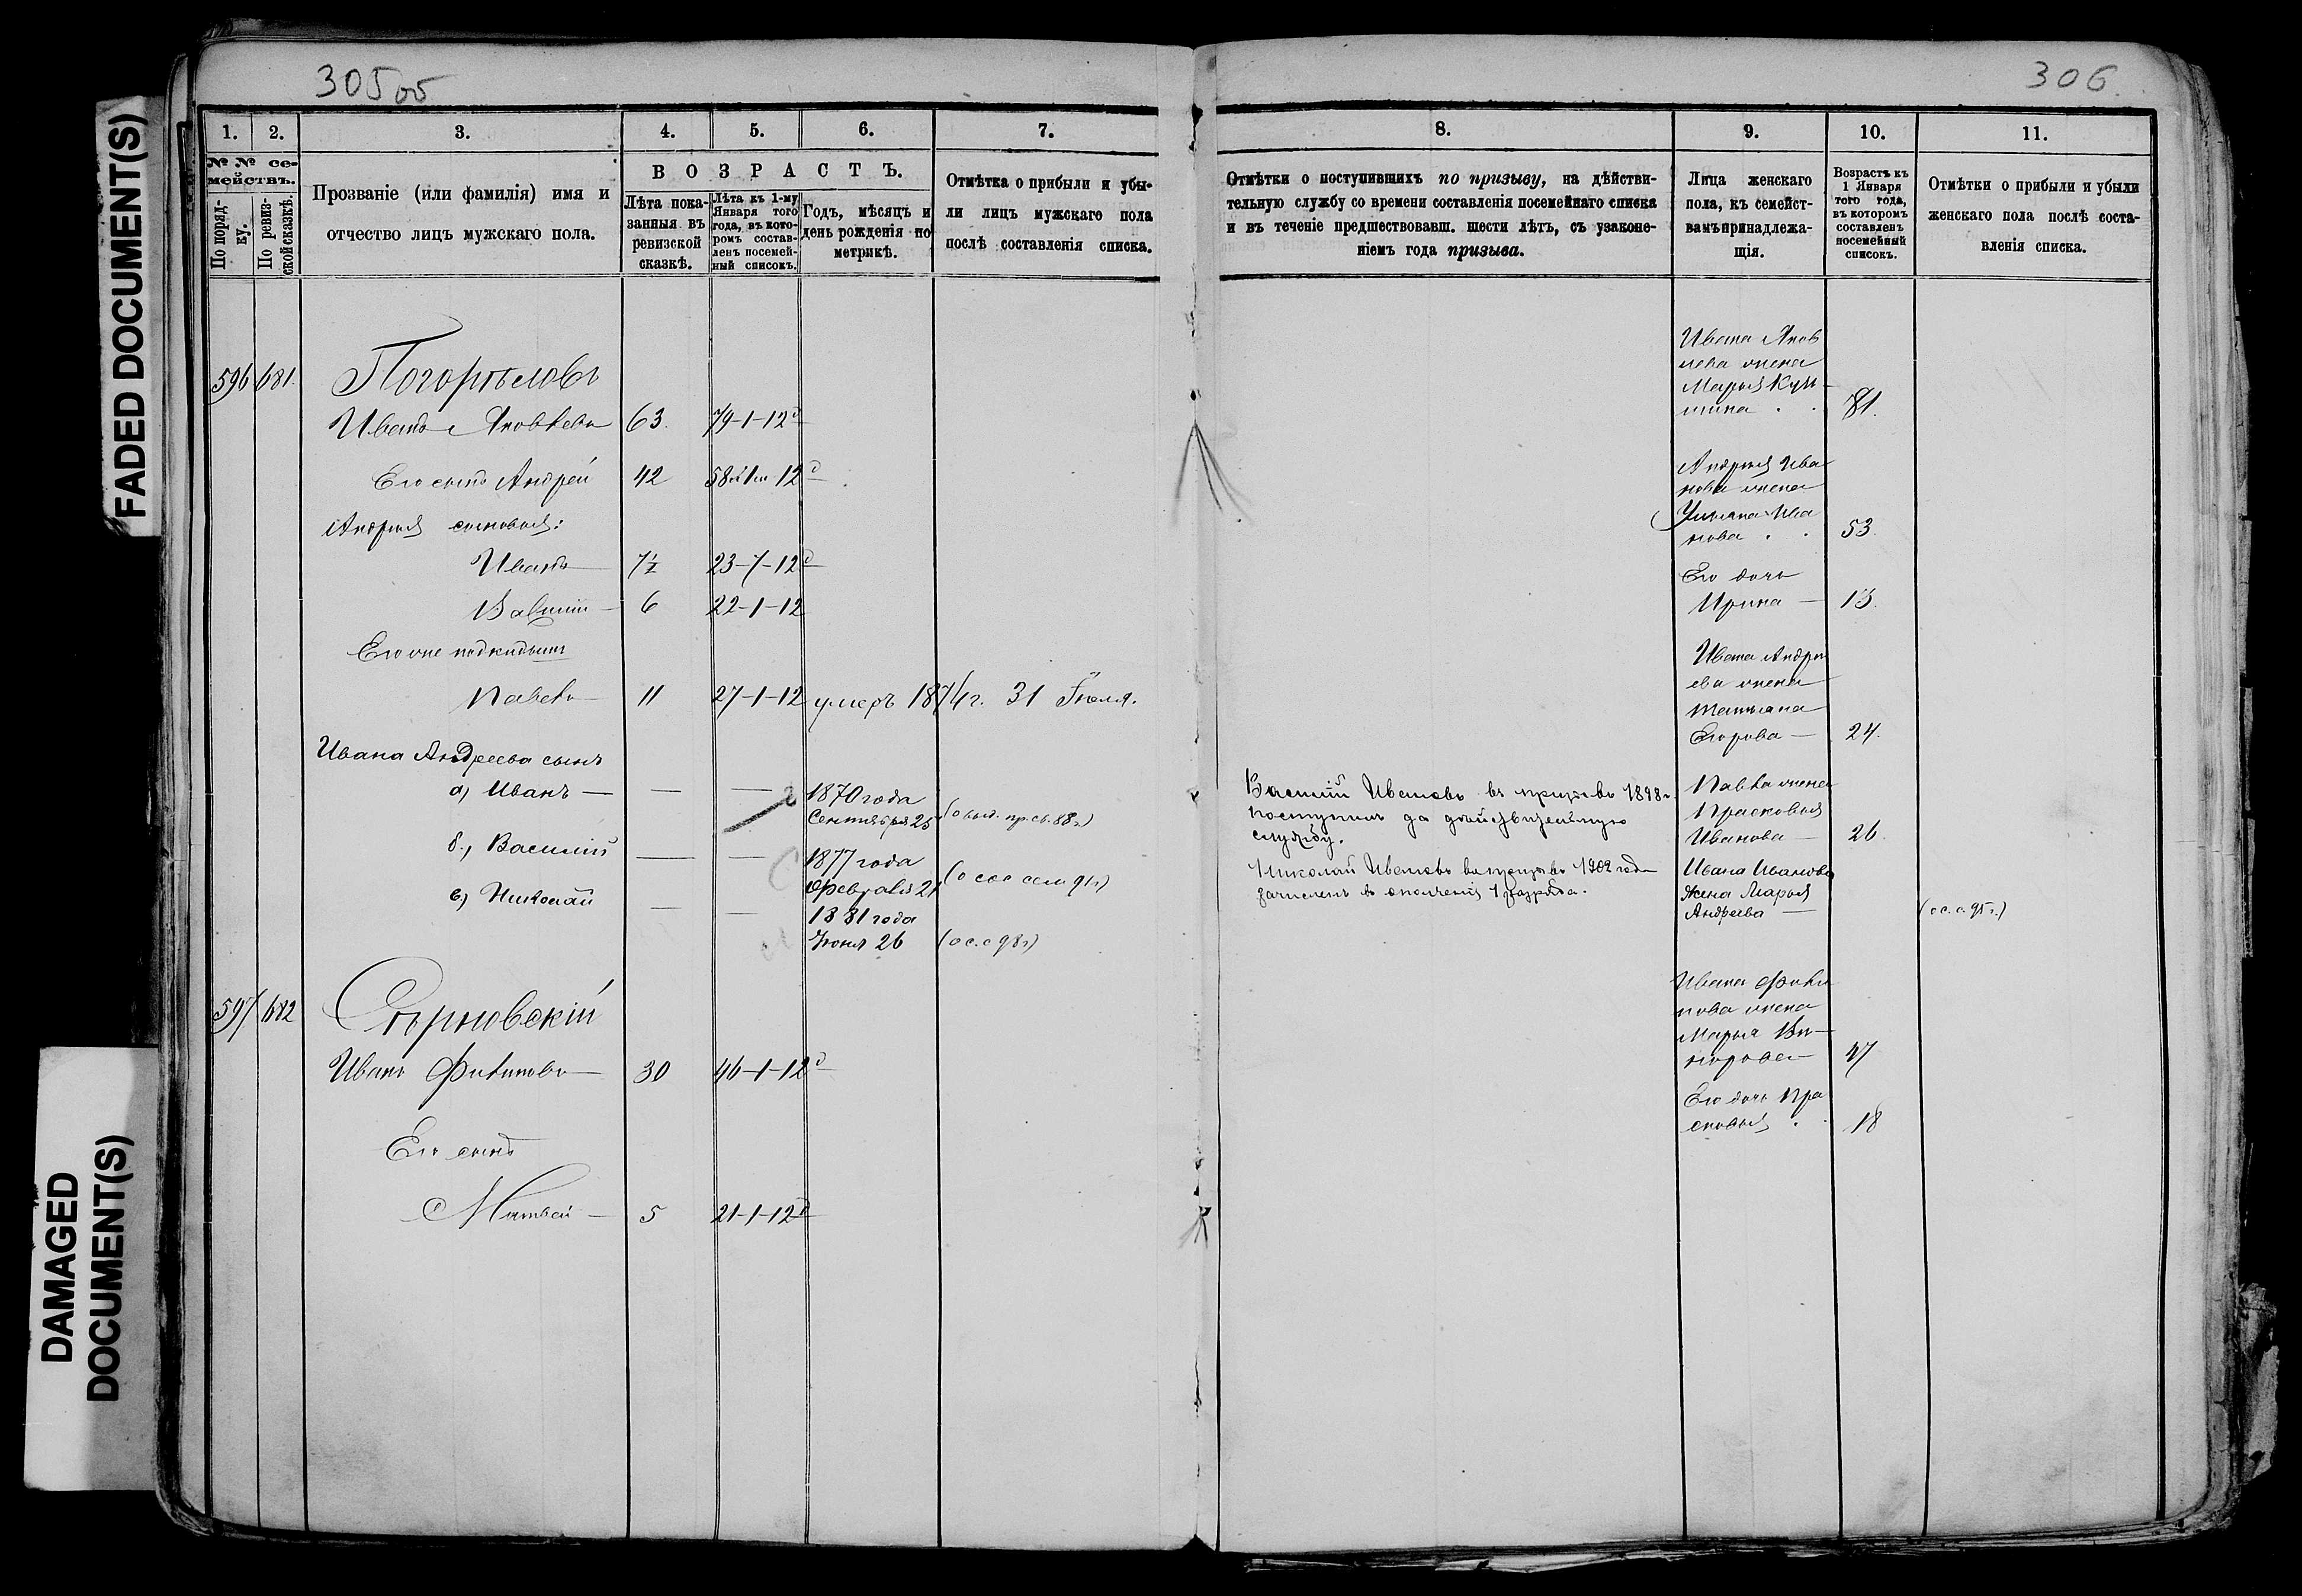 FADED DOCUMENT(S)
DAMAGED
DOCUMENT(S)
305 об
1.
2.
3.
4.
5.
6.
7.
№ № се-
мействъ.
По поряд-
ку.
По ревиз-
ской сказкѣ.
Прозваніе (или фамилія) имя и
отчество лицъ мужскаго пола.
ВОЗРАСТЪ.
Лѣта пока-
занныя въ
ревизской
сказкѣ.
Лѣта къ 1-му
Января того
года, въ кото-
ромъ состав-
ленъ посемей-
ный списокъ.
Годъ, мѣсяцъ и
день рожденія по
метрикѣ.
Отмѣтка о прибыли и убы-
ли лицъ мужскаго пола
послѣ составленія списка.
596 681. Погорѣловъ
Иванъ Яковлевъ 63. 79-1-12д
Его сынъ Андрей 42 58 1 12д
Андрея сыновья:
Иванъ 7½ 23-7-12д
Василій 6 22-1-12
Павелъ 11 27-1-12 умеръ 1874г. 31 Іюля.
Ивана Андреева сынъ
а) Иванъ — — — 1870 года
Сентября 25
б) Василій — — 1877 года
Февраля 21
в) Николай — — 1881 года
Іюня 26 (ос. с 98г)
597 682 Сѣрновскій
Иванъ Филиповъ 30 46-1-12д
Его сынъ
Матвей 5 21-1-12д
306.
8.
9.
10.
11.
Отмѣтки о поступившихъ по призыву, на дѣйстви-
тельную службу со времени составленія посемейнаго списка
и въ теченіе предшествовавш. шести лѣтъ, съ узаконе-
ніемъ года призыва.
Лица женскаго
пола, къ семейст-
вамъ принадлежа-
щія.
Возрастъ къ
1 Января
того года,
въ которомъ
составленъ
посемейный
списокъ.
Отмѣтки о прибыли и убыли
женскаго пола послѣ соста-
вленія списка.
Ивана Яков
лева жена
Марья Кузь-
мина 81.
Андрея Ива
нова жена
Ульяна Ива
нова 53
Его дочь
Ирина — 13.
Ивана Андре
ева жена
Татьяна
Егорова — 24.
Василій Ивановъ въ призывъ 1898г.
поступилъ на дѣйствительную
службу.
Николай Ивановъ въ призывъ 1902 года
зачисленъ въ ополченіе 1 разряда.
Павла жена
Прасковья
Иванова — 26
Ивана Иванова
жена Марья
Андреева — (ос. с. 95г.)
Ивана Фили
пова жена
Марья Ни-
47
Его дочь Пра
сковья 18